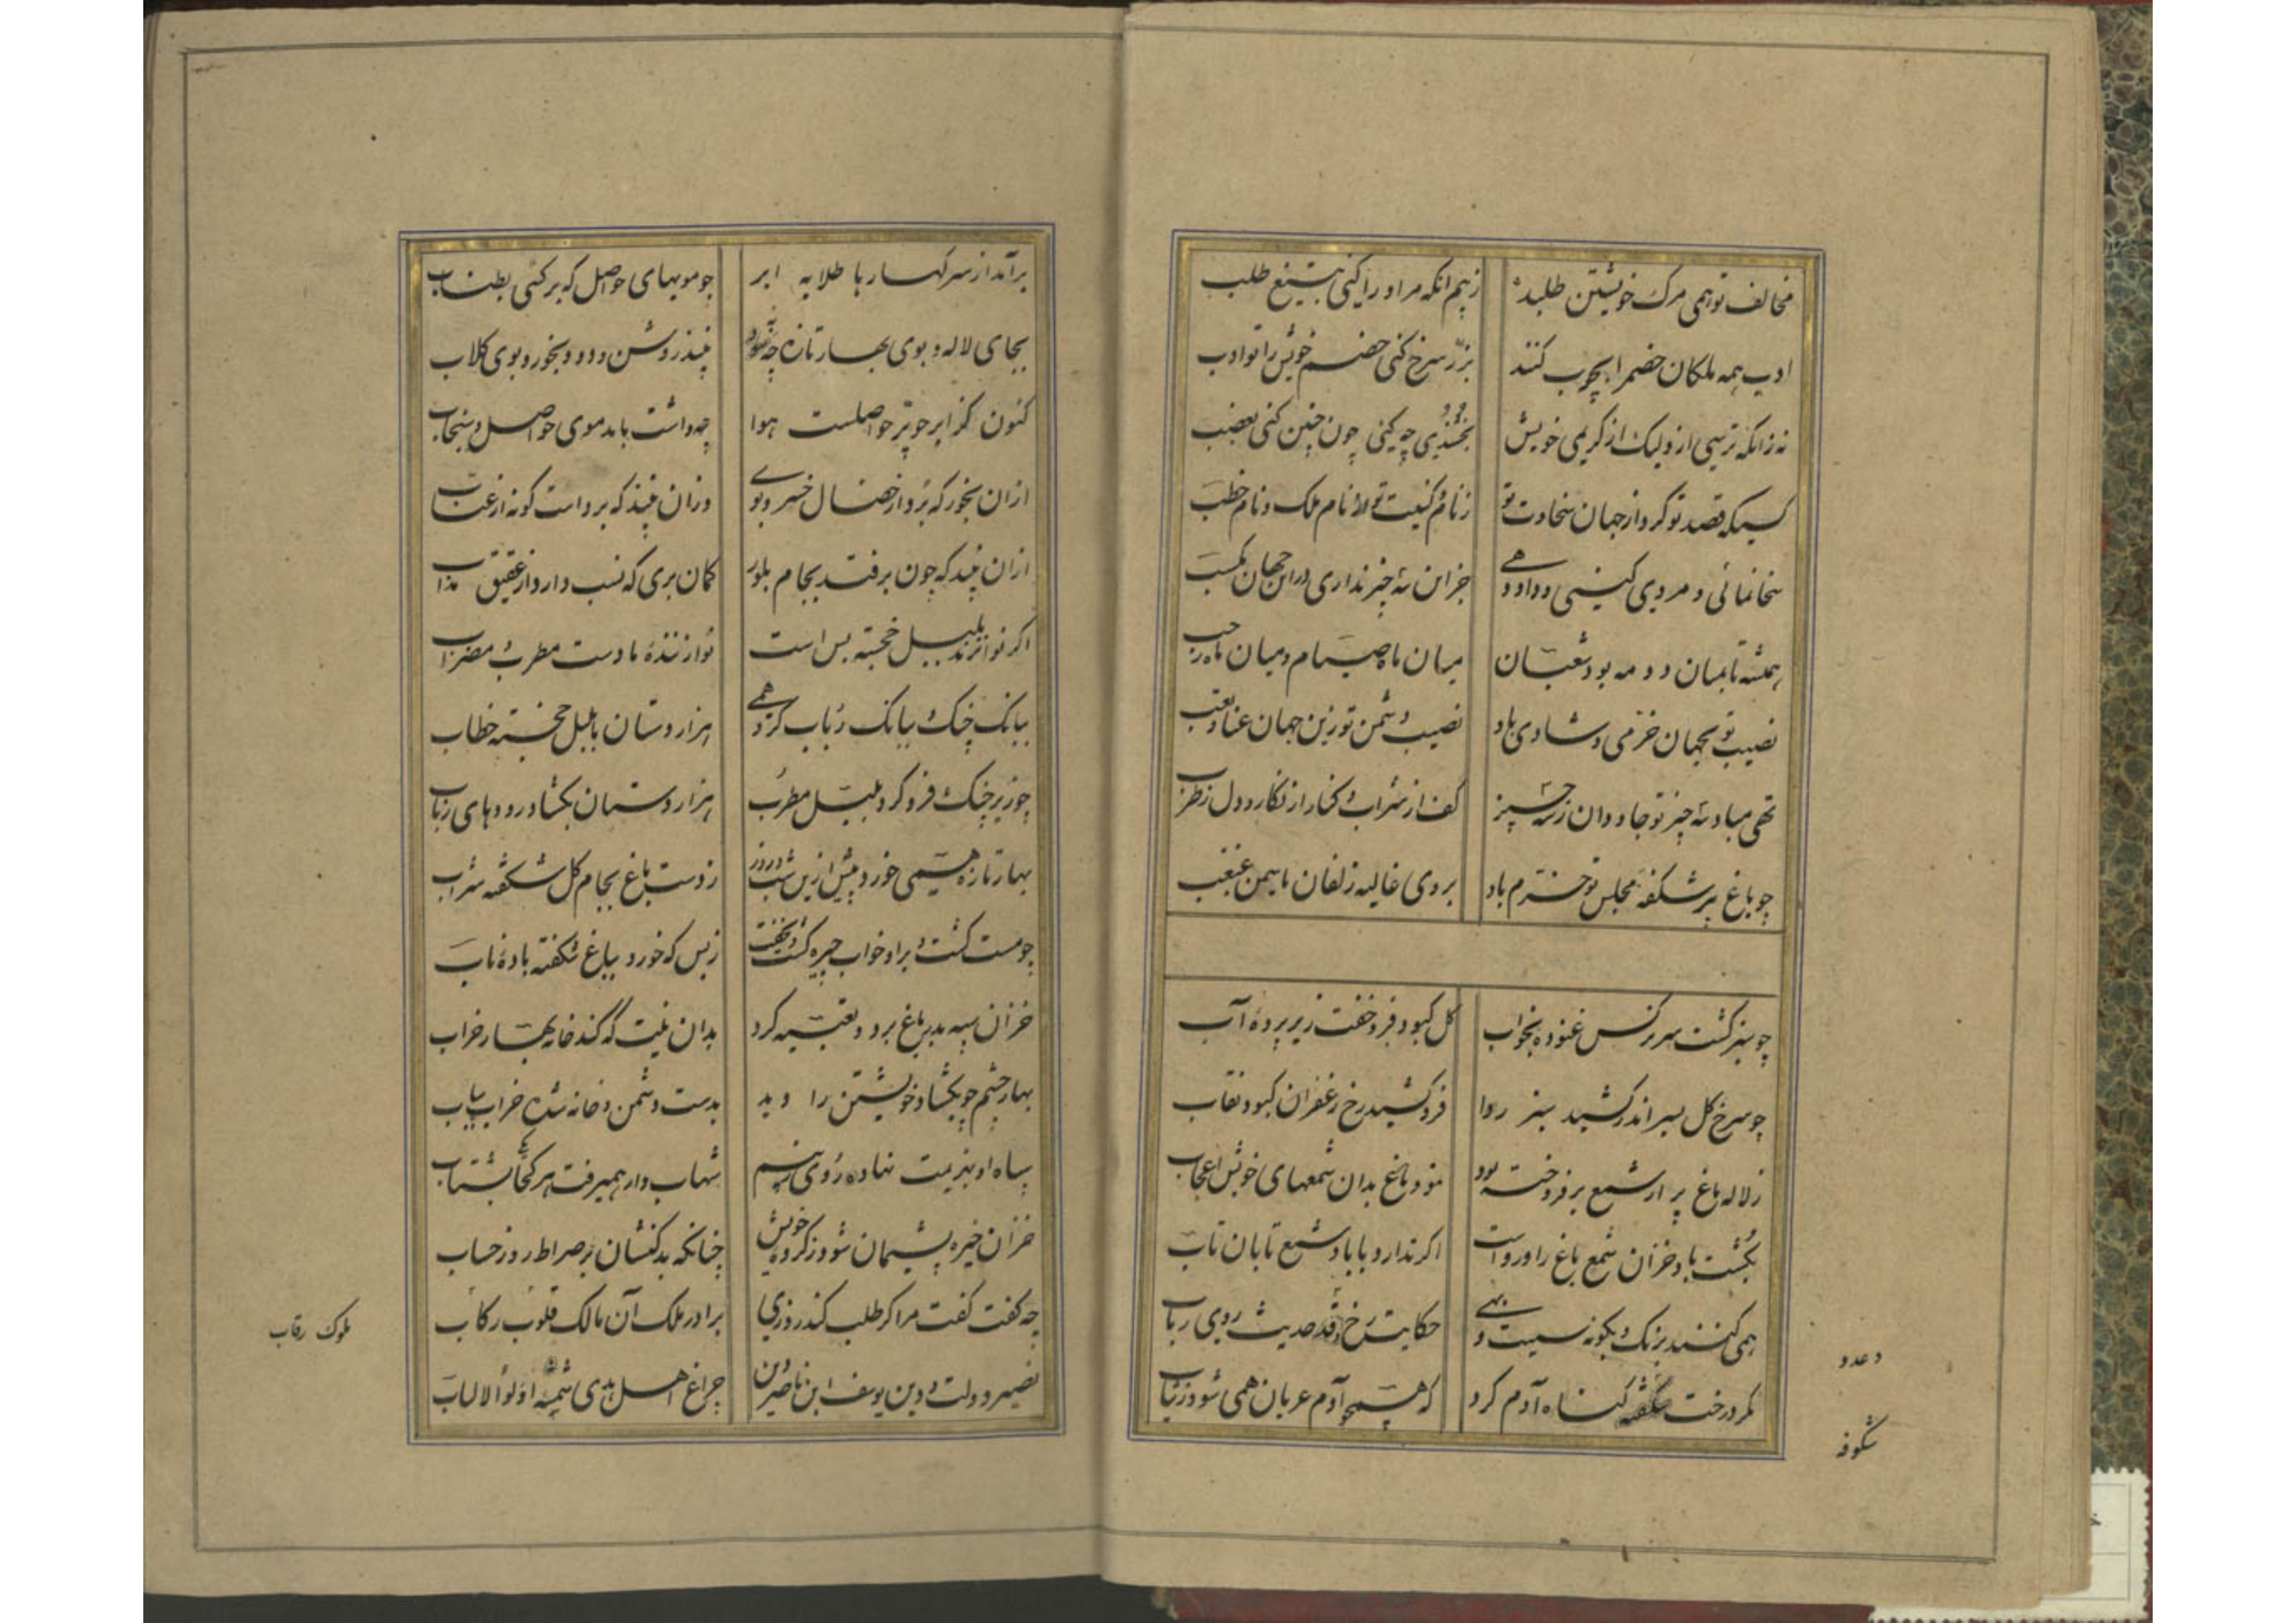 مخالف تو همی مرک خویشتن طلبد زبیم انکه مر او را کنی بتیغ طلب
ادیب همه ملکان خصم را بچوب کنند بزر سرخ کنی خصم خویش را تو ادب
نه زانکه ترسی از ولیک از کریمی خویش چه کنی چون چنین کنی بغضب
کسیکه قصد تو کرد از جهان سخاوت تو زنام کنیت تو نام ملک و نام خطب
سخا نمائی و مردی کنی و داد دهی جز این سه چیز نداری در این جهان مکسب
همیشه تا بمیان دو مه بود شعبان میان ماه صیام و میان ماه رجب
نصیب تو بجهان خرمی و شادی باد نصیب دشمن تو زین جهان عنا و تعب
تهی مباد سه چیز تو جاودان زسه چیز کف از شراب و کنار از نکار و دل زطرب
چو باغ پر شکفه مجلس تو خرم باد بروی غالیه زلفان یاسمین غبغب
چو سبز کشت سر نرکس غنوده بخواب کل کبود فرو خفت زیر پرده آب
چو سرخ کل بسر اندر کشید سبز ردا فرو کشید رخ زعفران کبود نقاب
ز لاله باغ پر از شمع بر فروخته بود نمود باغ بدان شمعهای خویش اعجاب
بکشت باد خزان شمع باغ را و رواست اکر ندارد با باد شمع تابان تاب
همی کنند برنک و بکونه سیب و بهی حکایت رخ دعد و حدیث روی رباب
مکر درخت شکفته کناه آدم کرد که همچو آدم عریان همی شود زثیاب
دعد و
شکوفه
برآمد از سر کهسارها طلایه ابر چو مویهای حواصل که برکشی بطناب
بجای لاله و بوی بهار تازه چه به بود نبیذ روشن و دود بخور و بوی کلاب
کنون کز ابر چو پر حواصلست هوا چه داشت باید موی حواصل و سنجاب
ازان بخور که برد از خصال خسرو بوی وزان نبیذ که برداشت کونه از عناب
ازان نبیذ که چون برفتد بجام بلور کمان بری که نسب دارد از عقیق مذاب
اکر نوا نزند بلبل خجسته بس است نوازننده با دست مطرب و مضراب
ببانک چنک و ببانک رباب کرد همی هزار دستان با بلبل خجسته خطاب
چو زیر چنک فرو کرد بلبل مطرب هزار دستان بکشاد رودهای رباب
بهار تازه همی خورد پیش ازین شب و روز زدست باغ بجام کل شکفته شراب
چو مست کشت و براو خواب چیره کشت و بخفت زبس که خورد بباغ شکفته باده ناب
خزان سپه بدر باغ برد و تعبیه کرد بدان نیت که کند خانه بهار خراب
بهار چشم چو بکشاد خویشتن را دید بدست دشمن و خانه شده خراب و یباب
سپاه او بهزیمت نهاده روی زبیم شهاب وار همیرفت هر کجا بشتاب
خزان خیره پشیمان شود ز کرده خویش چنانکه بدکنشان بر صراط روز حساب
چه کفت کفت مرا کر طلب کند روزی برادر ملک آن مالک قلوب رکاب
نصیر دولت و دین یوسف ابن ناصر دین چراغ اهل هدی شمسه اولوالالباب
ملوک رقاب